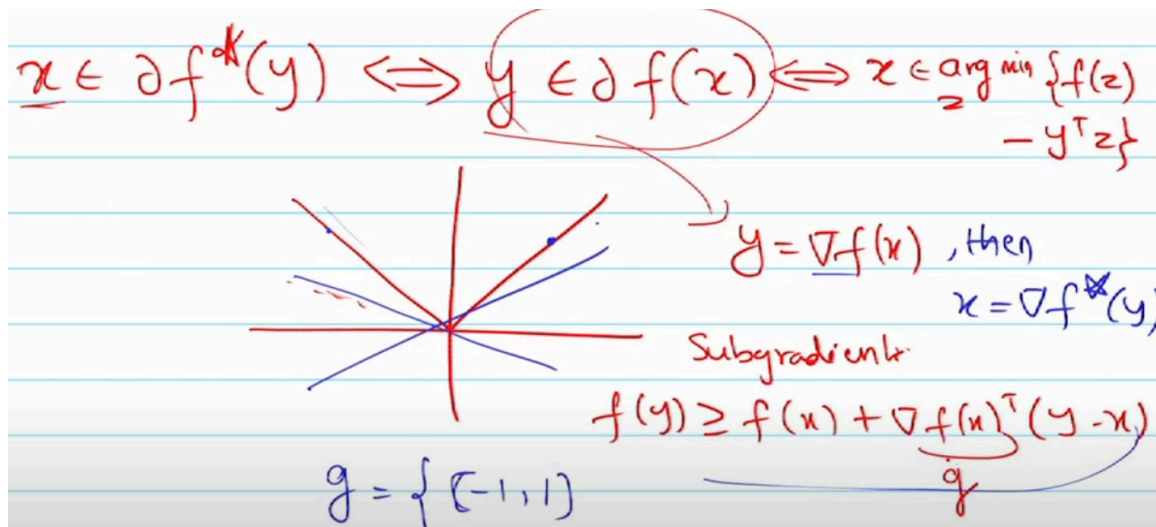 x ∈ ∂f*(y) ⟺ y ∈ ∂f(x) ⟺ x ∈ arg min {f(z)
z
− yᵀz}
y = ∇f(x) , then
x = ∇f*(y)
Subgradient
f(y) ≥ f(x) + ∇f(x)ᵀ(y-x)
g
g = { [-1, 1]